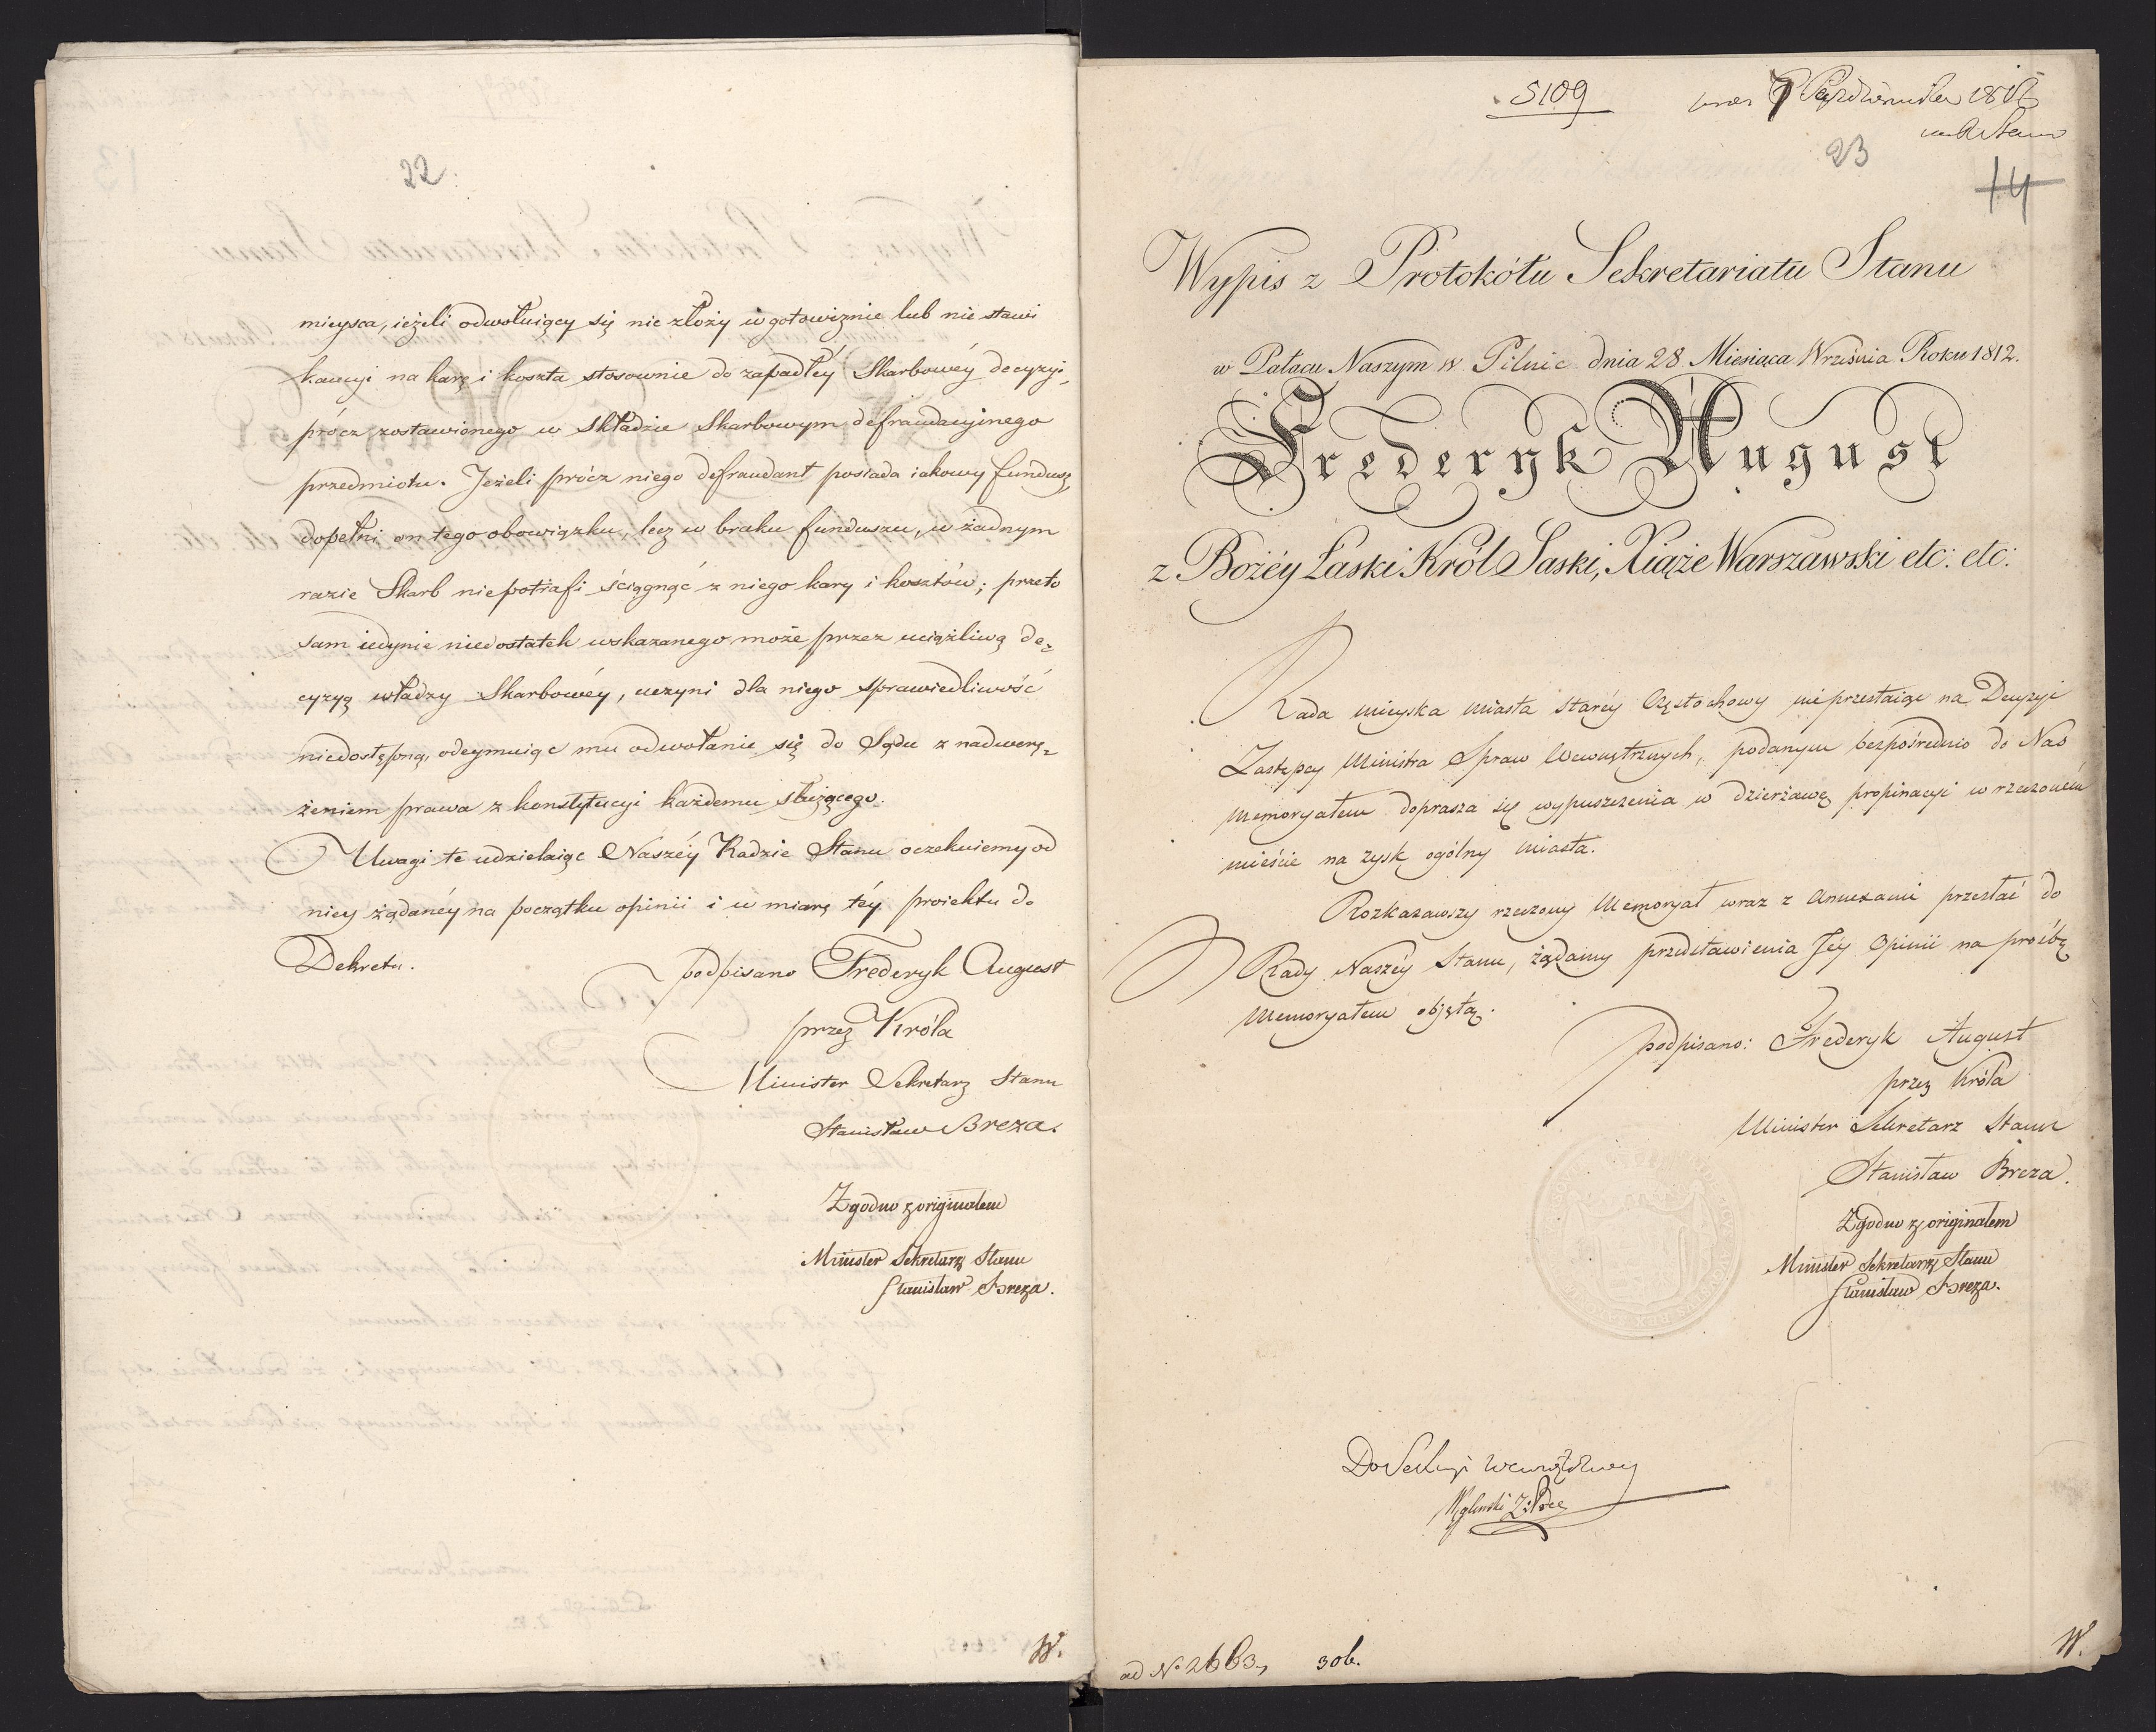 22.
mieysca, ieżeli odwołuiący się nie złoży w gotowiznie lub nie stawi
kaucyi na karę i koszta stosownie do zapadłéy Skarbowéy decyzyi,
prócz zostawionego w Składzie Skarbowym defraudacyinego
przedmiotu. Jeżeli prócz niego defraudant posiada iakowy fundusz,
dopełni on tego obowiązku, lecz w braku funduszu, w żadnym
razie Skarb niepotrafi ściągnąć z niego kary i kosztów; przeto
sam iedynie niedostatek wskazanego może przez uciążliwą de-
cyzyą władzy Skarbowéy, uczyni dla niego sprawiedliwość
niedostępną, odeymuiąc mu odwołanie się do Sądu z nadwerę-
żeniem prawa z konstytucyi każdemu służącego.
Uwagi te udzielaiąc Naszéy Radzie Stanu oczekuiemy od
niey żądanéy na początku opinii i w miarę téy proiektu do
Dekretu.
podpisano Frederyk August
przez Króla
Minister Sekretarz Stanu
Stanisław Breza.
Zgodno z originałem
Minister Sekretarz Stanu
Stanisław Breza.
W.
5109
7 Października 1812
23
14
Wypis z Protokółu Sekretariatu Stanu
w Pałacu Naszym w Pilnic dnia 28 Miesiąca Września Roku 1812.
Frederyk August
z Bożéy Łaski Król Saski, Xiąże Warszawski etc: etc:
Rada mieyska miasta Staréy Częstochowy nieprzestaiąc na Decyzyi
Zastępcy Ministra Spraw Wewnętrznych, podanym bezpośrednio do Nas
memoryałem doprasza się wypuszczenia w dzierżawę propinacyi w rzeczoném
mieście na zysk ogólny miasta.
Rozkazawszy rzeczony Memoryał wraz z Annexami przesłać do
Rady Naszéy Stanu, żądamy przedstawienia Jéy Opinii na prośbę
Memoryałem objętą.
podpisano: Frederyk August
przez Króla
Minister Sekretarz Stanu
Stanisław Breza.
Zgodno z originałem
Minister Sekretarz Stanu
Stanisław Breza.
Do Sekcyi Wewnętrzney
ad No 2663,
W.